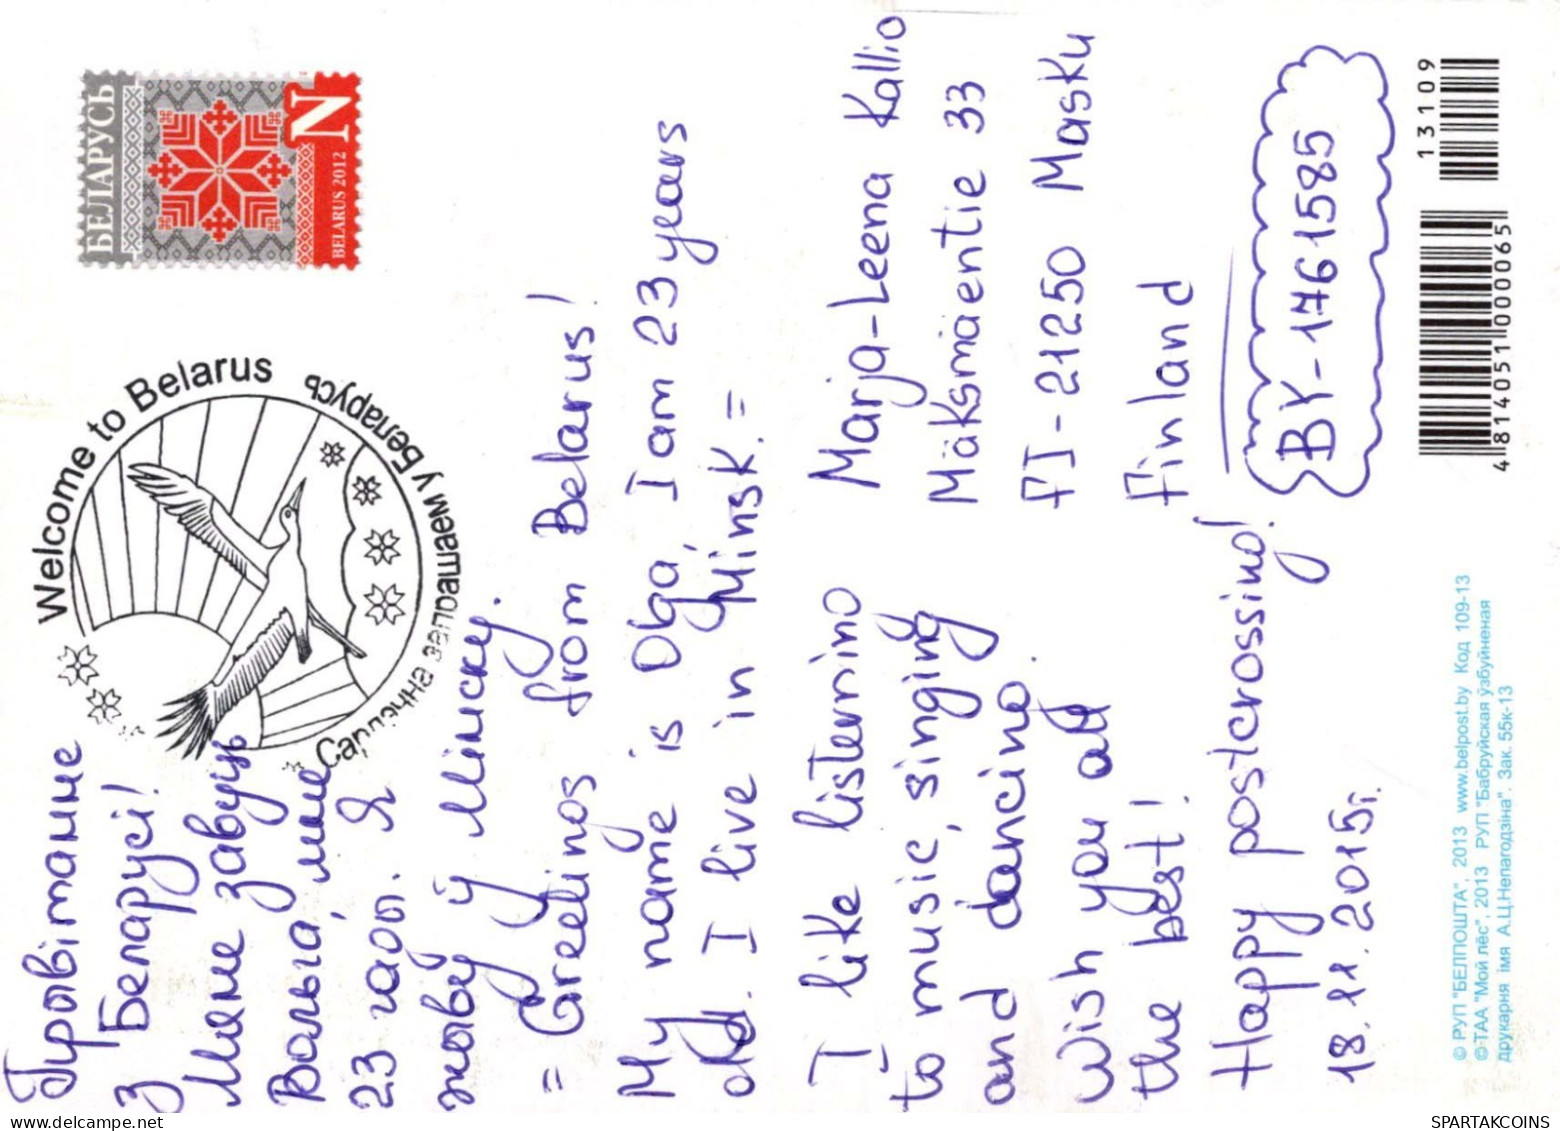 Прывітанне
з Беларусі!
Мяне завуць
Вольга, мне
23 гады. Я
жыву ў Мінску.
= Greetings from Belarus!
My name is Olga, I am 23 years
old. I live in Minsk. =
I like listerning
to music, singing
and dancing.
Wish you all
the best!
Happy postcrossing!
18.11.2015г.
Welcome to Belarus
Сардэчна запрашаем у Беларусь
БЕЛАРУСЬ
N
BELARUS 2012
Marja-Leena Kallio
Mäksmäentie 33
FI-21250 Masku
Finland
BY-1761585
13109
4 814051 000065
© РУП "БЕЛПОШТА", 2013 www.belpost.by Код 109-13
© ТАА "Мой лёс", 2013 РУП "Бабруйская ўзбуйненая
друкарня імя А.Ц.Непагодзіна". Зак. 55к-13
SPARTAKCOINS